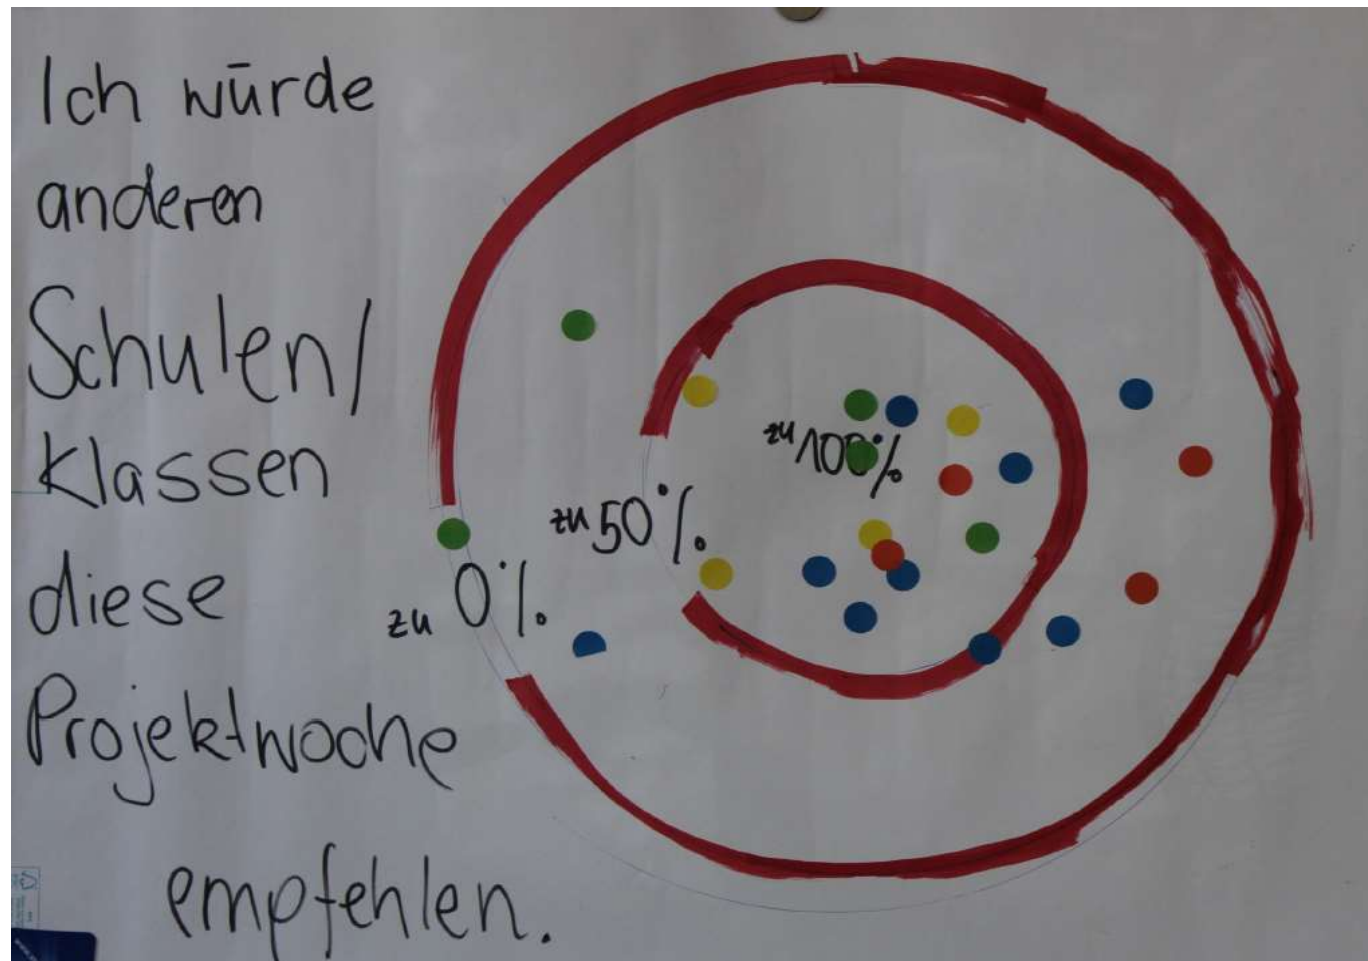 Ich würde
anderen
Schulen/
Klassen
diese
Projektwoche
empfehlen.
zu 100%
zu 50%
zu 0%